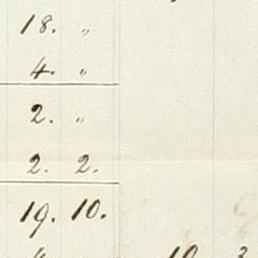 18. "
4. "
2. "
2. 2.
19. 10.
10 3